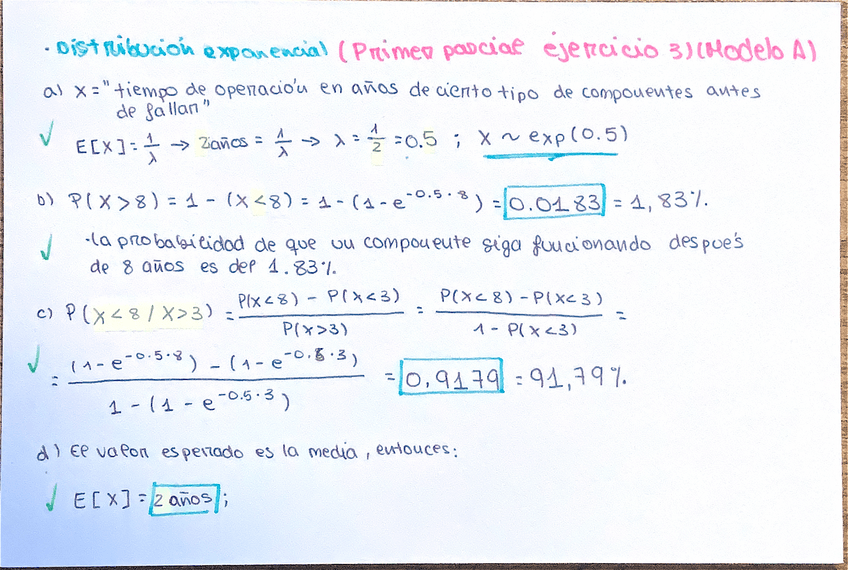 · Distribución exponencial (Primer parcial ejercicio 3) (Modelo A)
a) X = "tiempo de operación en años de cierto tipo de componentes antes
de fallar"
✓ E[X] = 1/λ → 2 años = 1/λ → λ = 1/2 = 0.5 ; X ~ exp(0.5)
b) P(X > 8) = 1 - (X < 8) = 1 - (1 - e^-0.5·8) = 0.0183 = 1,83%.
✓ · la probabilidad de que un componente siga funcionando después
de 8 años es del 1.83%.
c) P(X < 8 / X > 3) = (P(X < 8) - P(X < 3)) / P(X > 3) = (P(X < 8) - P(X < 3)) / (1 - P(X < 3)) =
✓ = ((1 - e^-0.5·8) - (1 - e^-0.5·3)) / (1 - (1 - e^-0.5·3)) = 0,9179 = 91,79%.
d) El valor esperado es la media, entonces:
✓ E[X] = 2 años ;